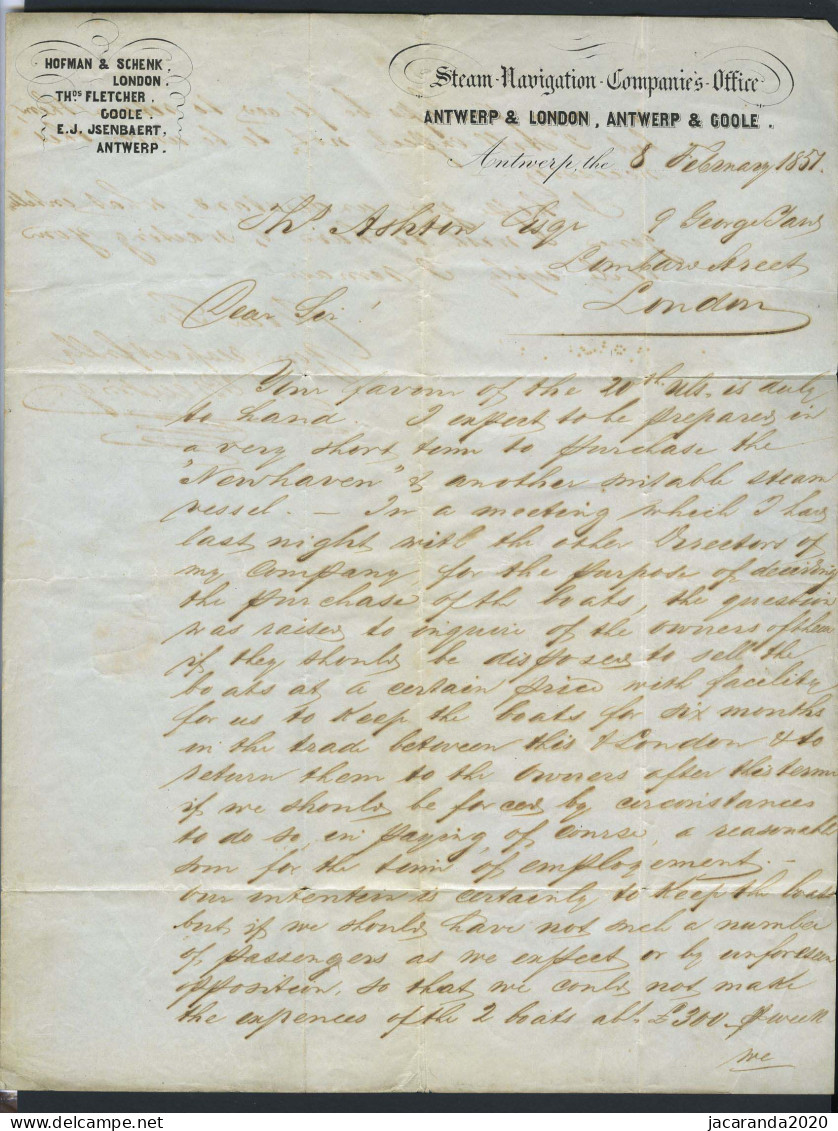 HOFMAN & SCHENK.
LONDON.
THOS FLETCHER.
GOOLE.
E.J. JSENBAERT,
ANTWERP.
Steam-Navigation-Companie's-Office
ANTWERP & LONDON, ANTWERP & GOOLE.
Antwerp, the 8 February 1851.
Ths Ashton Esqr 9 George Yard
Lombard Street
London
Dear Sir!
Your favour of the 20th ulto. is duly
to hand. I expect to be prepared in
a very short term to purchase the
"Newhaven" & another suitable steam
vessel. – In a meeting which I had
last night with the other Directors of
my Company, for the purpose of deciding
the purchase of th boats, the question
was raised to inquire of the owners of them
if they should be disposed to sell the
boats at a certain price with facility
for us to keep the boats for six months
in the trade between this & London & to
return them to the owners after this term
if we should be forced by circonstances
to do so, in paying, of course, a reasonable
sum for the time of employement. –
Our intention is certainly to keep the boats
but if we should have not such a number
of passengers as we expect or by unforeseen
opposition, so that we could not make
the expences of the 2 boats abt. £300 p week
we
jacaranda2020